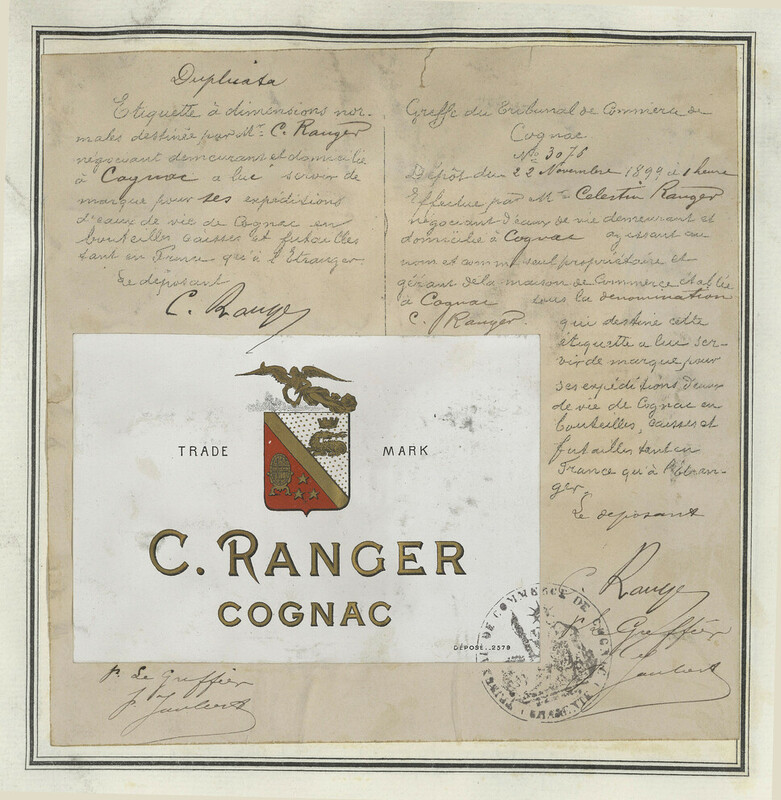 Duplicata
Etiquette à dimensions nor-
males destinée par Mr. C. Ranger
négociant demeurant et domicilié
à Cognac a lui servir de
marque pour ses expéditions
d'eaux de vie de Cognac en
bouteilles caisses et futailles
tant en France qu'à l'Etranger
Le déposant
C. Ranger
Greffe du Tribunal de Commerce de
Cognac.
No 3078
Dépôt du 22 Novembre 1899 à 1 heure
Effectué par Mr Célestin Ranger
négociant d'eaux de vie demeurant et
domicilié à Cognac agissant au
nom et comme seul propriétaire et
gérant de la maison de Commerce établie
à Cognac sous la dénomination
C. Ranger qui destine cette
étiquette a lui ser-
vir de marque pour
ses expéditions d'eaux
de vie de Cognac en
bouteilles, caisses et
futailles tant en
France qu'à l'Etran-
ger.
Le déposant
C. Ranger
P. Le Greffier
Jaubert
TRADE MARK
C. RANGER
COGNAC
DÉPOSÉ. 2579
TRIBUNAL DE COMMERCE DE COGNAC
P. Le Greffier
Jaubert